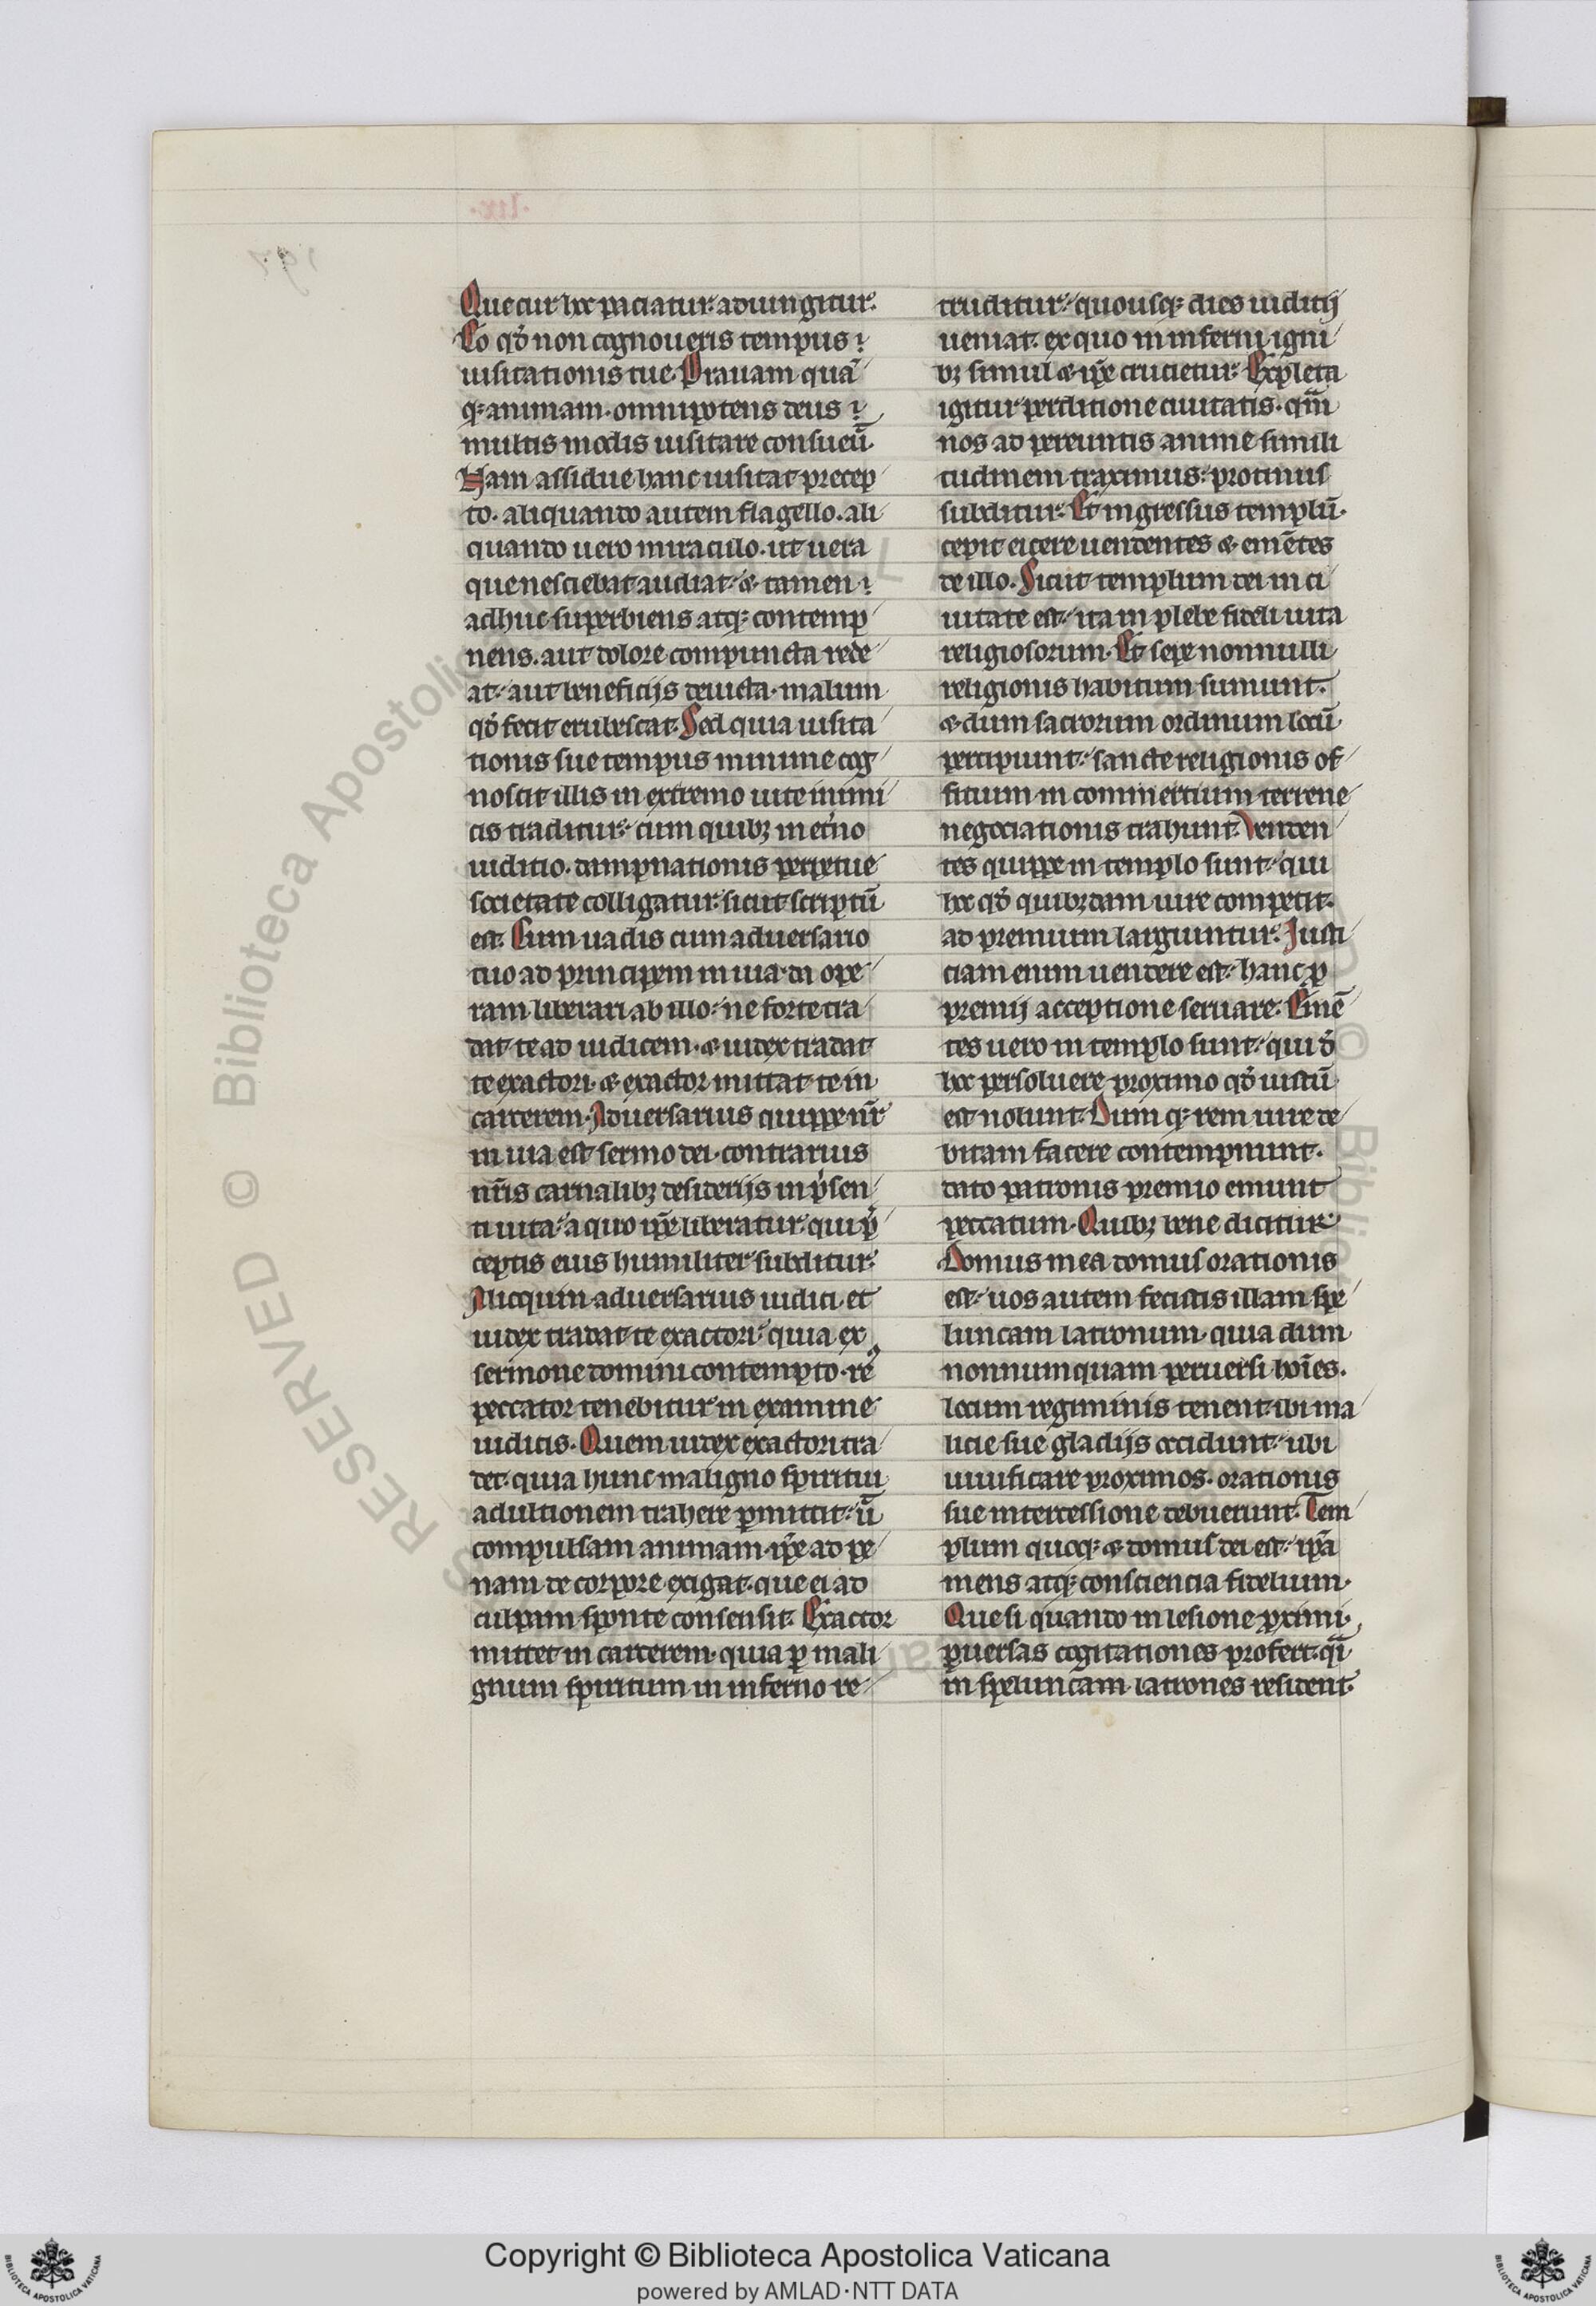 Que cur hoc paciatur· adiungitur·
Eo qđ non cognoueris tempus
uisitationis tue· Prauam quā
q; animam· omnipotens deus
multis modis uisitare consueū·
Nam assidue hanc uisitat precep
to· aliquando autem flagello· ali
quando uero miraculo· ut uera
que nesciebat audiat· & tamen
adhuc superbiens atq; contemp
nens· aut dolore compuncta rede
at· aut beneficijs deuicta· malum
qđ fecit erubescat· Sed quia uisita
tionis sue tempus minime cog
noscit illis in extremo uite inimi
cis traditur· cum quib; in et̾no
iudicio· dampnationis perpetue
societate colligatur· sicut scriptū
est· Cum uadis cum aduersario
tuo ad principem in uia· da ope
ram liberari ab illo· ne forte tra
dat te ad iudicem· & iudex tradat
te exactori· & exactor mittat te in
carcerem· Aduersarius quippe nr̄
in uia est sermo dei· contrarius
nr̄is carnalib; desiderijs in p̾sen
ti uita· a quo ipse liberatur· qui p̾
ceptis eius humiliter subditur·
Alioquin aduersarius iudici· et
iudex tradat te exactori· quia ex
sermone domini contempto· re᷒
peccator tenebitur in examine
iudicis· Quem iudex exactori tra
det· quia hunc maligno spiritui
ad ultionem trahere ꝑmittit· ū
compulsam animam ip̄e ad pe
nam de corpore exigat· que ei ad
culpam sponte consensit· Exactor
mittet in carcerem· quia ꝑ mali
gnum spiritum in inferno re
truditur· quousq; dies iudicij
ueniat· ex quo in inferni igni
b; simul & ip̄e crucietur· Expleta
igitur perditione ciuitatis· qm̄
nos ad pereuntis anime simili
tudinem traximus· protinus
subditur· Et ingressus templū·
cepit eicere uendentes & emētes
de illo· Sicut templum dei in ci
uitate est· ita in plebe fideli uita
religiosorum· Et sepe nonnulli
religionis habitum sumunt·
& dum sacrorum ordinum locū
percipiunt· sancte religionis of
ficium in commercium terrene
negociationis trahunt· Venden
tes quippe in templo sunt· qui
hoc qđ quib;dam iure competit·
ad premium largiuntur· Iusti
ciam enim uendere est· hanc ꝓ
premij acceptione seruare· Emē
tes uero in templo sunt· qui d̾
hoc persoluere proximo qđ iustū
est nolunt· Dum q; rem iure de
bitam facere contempnunt·
dato patronis premio emunt
peccatum· Quib; bene dicitur
Domus mea domus orationis
est· uos autem fecistis illam spe
luncam latronum· quia dum
nonnumquam peruersi hoīes·
locum regiminis tenent· ibi ma
licie sue gladijs occidunt· ubi
uiuificare proximos· orationis
sue intercessione debuerunt· Tem
plum quoq; & domus dei est· ip̄a
mens atq; consciencia fidelium·
Que si quando in lesione ꝓximi
ꝑuersas cogitationes profert· q̄i
in speluncam latrones resident·
RESERVED © Biblioteca Apostolica
Copyright © Biblioteca Apostolica Vaticana
powered by AMLAD·NTT DATA